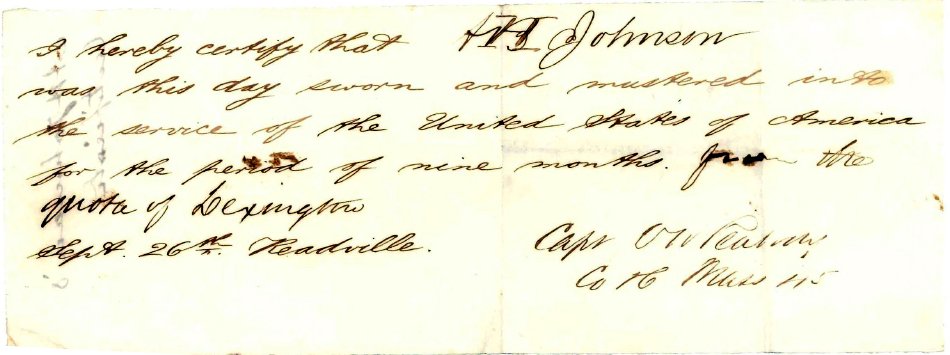 I hereby certify that Johnson
was this day sworn and mustered into
the service of the United States of America
for the period of nine months. from the
quota of Lexington
Sept. 26th. Readville.
Capt O W Peabody
Co H Mass 45